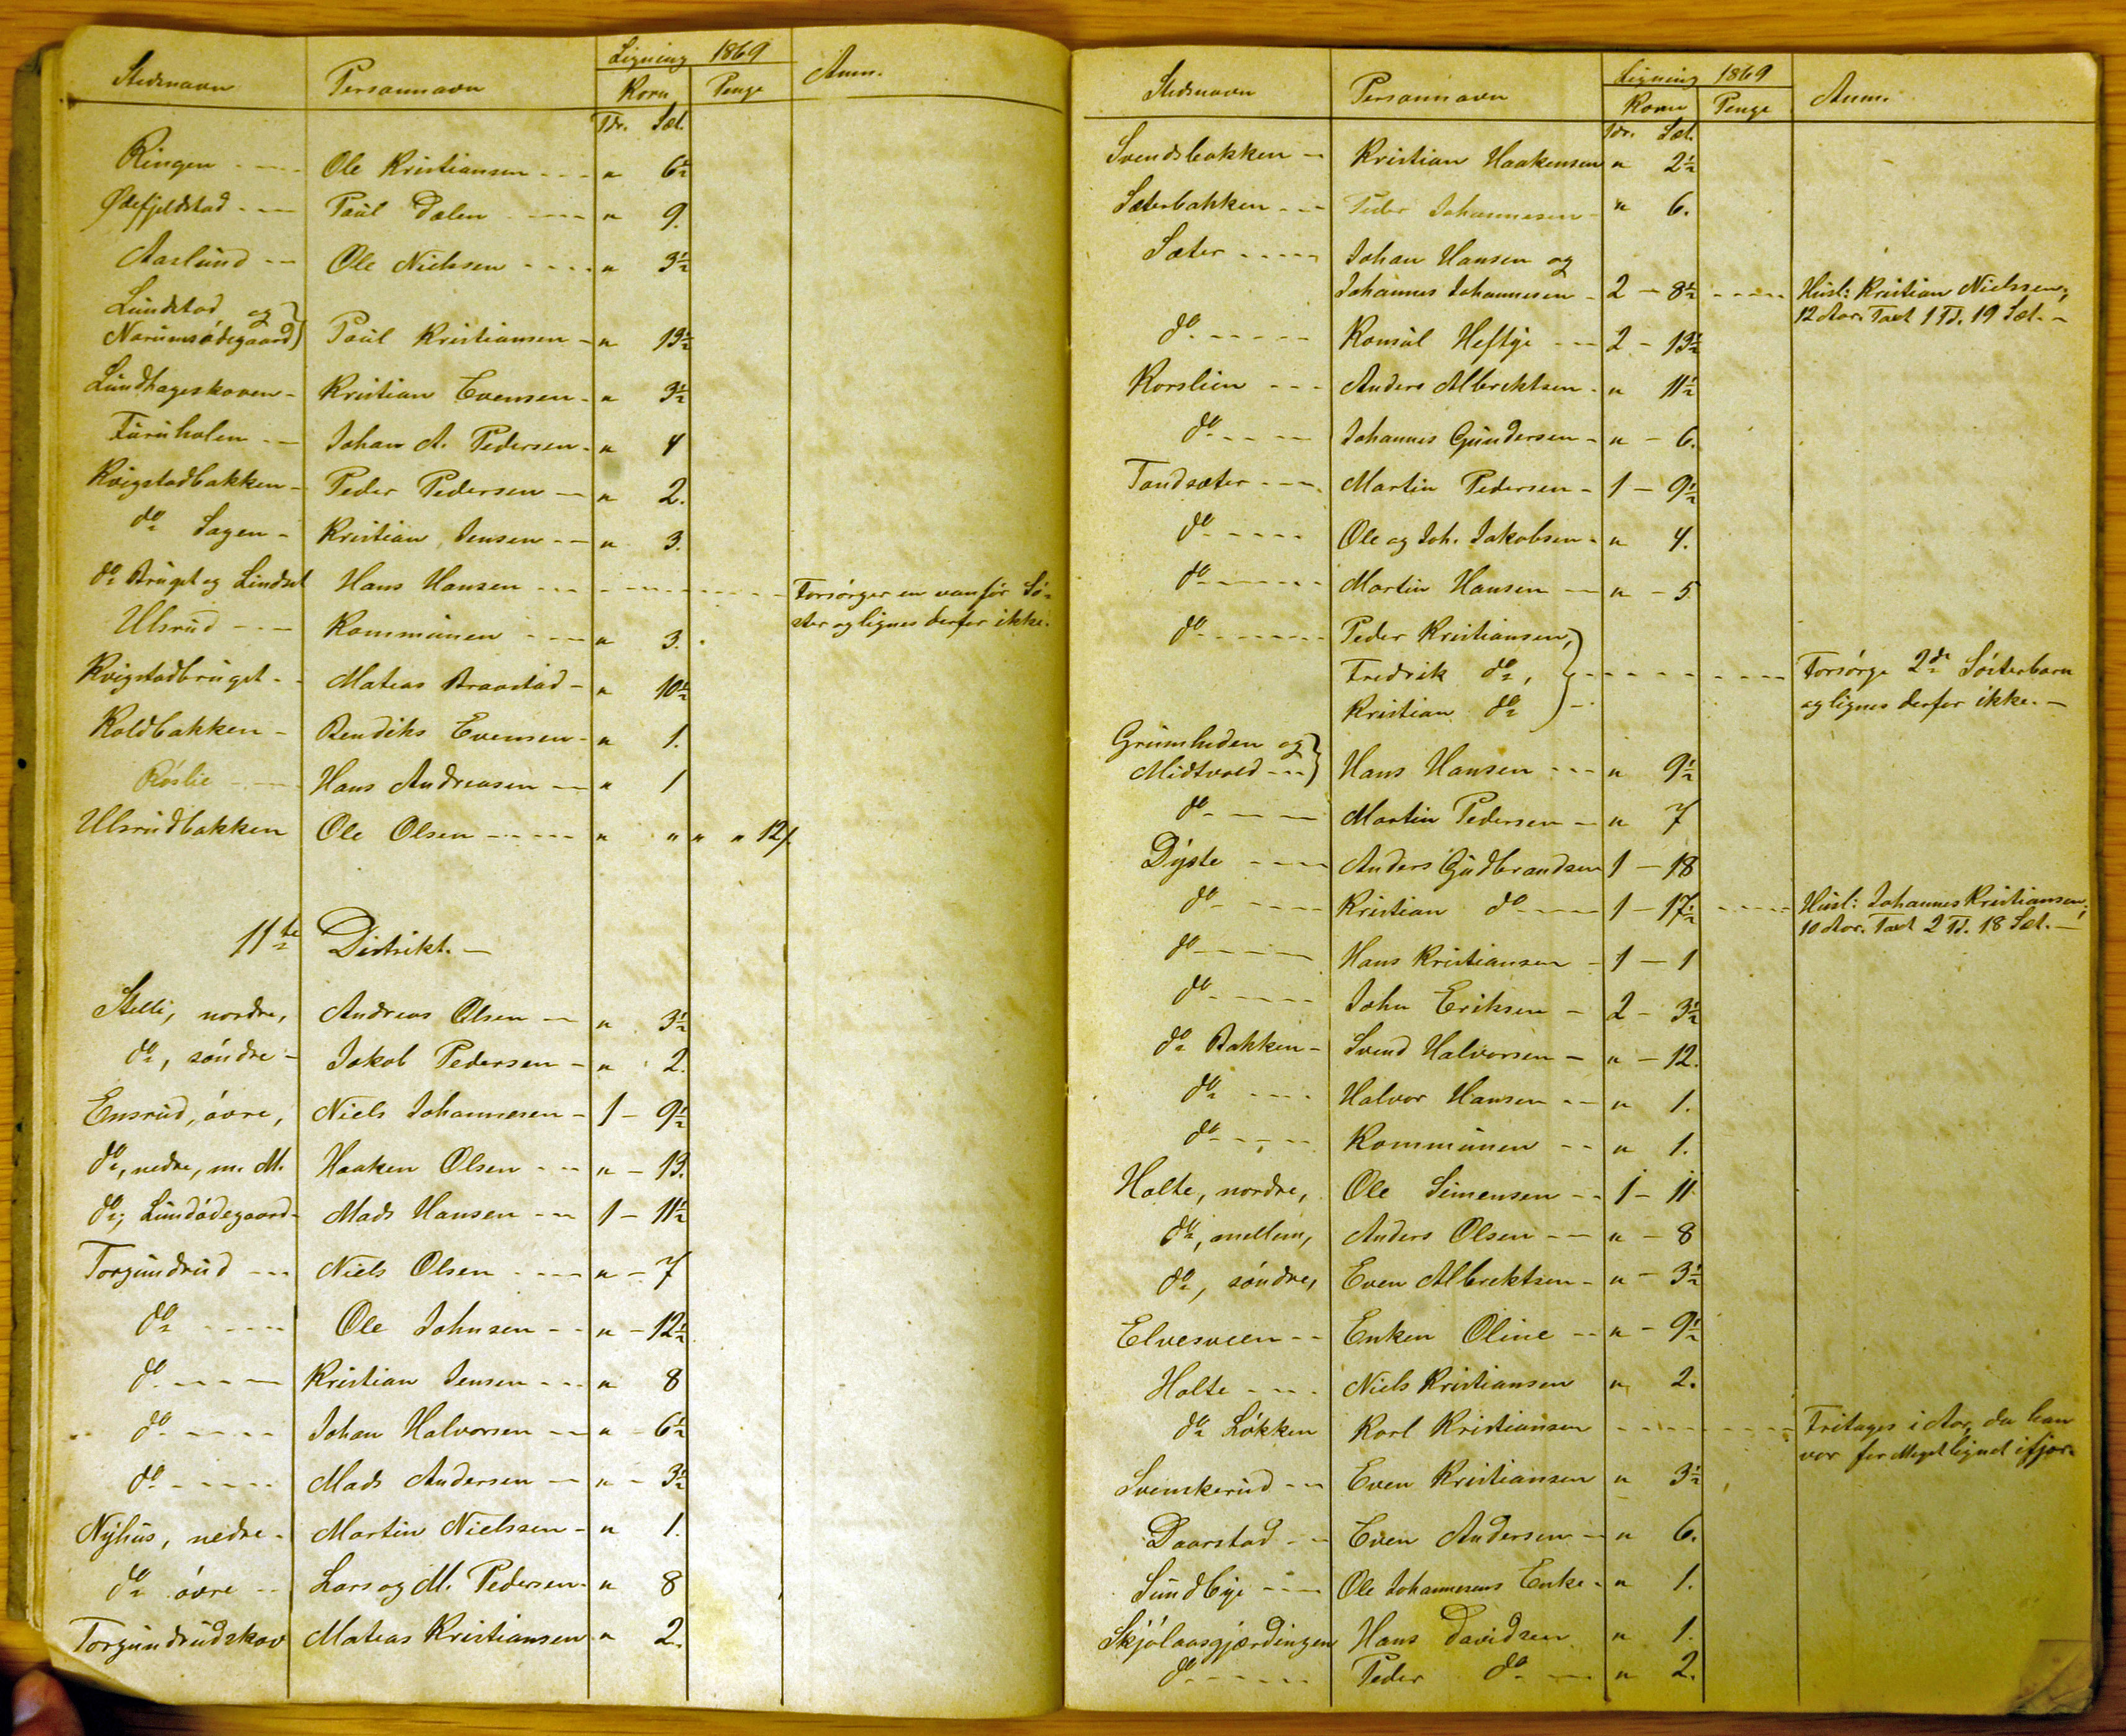 Stedsnavn Personnavn Ligning 1869 Anm.
Korn Penge
Tdr. Sæt.
Ringen - - - Ole Kristiansen - - - " 6½
Ødefjeldstad - - - Paul Dalen - - - " 9.
Aaslund - - Ole Nielssen - - - - " 3½
Lundstad og }
Narumsødegaard } Paul Kristiansen - " 13½
Lundhageskoven - Kristian Evensen - " 3½
Furuholen - - Johan A. Pedersen - " 4
Kvigstadbakken - Peder Pedersen - " 2.
do Sagen - Kristian Jensen - - " 3.
do Bruget og Lindset Hans Hansen - - - - - - - - Forsørger en vanfør Sø-
ster og lignes derfor ikke.
Ulsrud - - - Kommunen - - - " 3.
Kvigstadbruget - - Mateas Braastad - " 10½
Koldbakken - Bendiks Evensen - " 1.
Røslie - - - Hans Andreasen - - " 1
Ulsrudbakken Ole Olsen - - - - - " " " " 12/.
11te Distrikt. -
Stelli, nordre, Andreas Olsen - - " 3½
do, søndre - Jakob Pedersen - " 2.
Ensrud, øvre, Niels Johannesen - 1 - 9½
do, nedre, m. M. Haaken Olsen - - - " - 13.
do, Lundødegaard - Mads Hansen - - - 1 - 11½
Torgundrud - - - Niels Olsen - - - - " - 7
do - - - - Ole Johnsen - - " - 12½
do - - - - Kristian Jensen - - - " 8
do - - - - Johan Halvorsen - - " - 6½
do - - - - - Mads Andersen - " - 3½
Nyhus, nedre - Martin Nielssen - " 1.
do øvre - - Lars og M. Pedersen - " 8
Torgundrudskov Mateas Kristiansen " 2.
Stedsnavn Personnavn Ligning 1869 Anm.
Korn Penge
Tdr. Sæt.
Svendsbakken - Kristian Haakensen " 2½
Sæterbakken - - - Peder Johannesen - " 6.
Sæter - - - - - Johan Hansen og
Johannes Johannesen - 2 - 8½ - - - - - Husl: Kristian Nielssen;
12 Aar. Taxt 1 Td. 19 Sæt. -
do - - - - - Konsul Heftye - - - 2 - 13½
Korslien - - - Anders Albrektsen - " 11½
do - - - - Johannes Gundersen - " - 6.
Tandsæter - - - Martin Pedersen - 1 - 9½
do - - - - - Ole og Joh. Jakobsen - " 4.
do - - - - - Martin Hansen - - " - 5
do - - - - - - Peder Kristiansen, }
Fredrik do, } - - - - - - - - Forsørge 2de Søsterbørn
Kristian do } - og lignes derfor ikke. -
Grumheden og }
Midtvold - - - } Hans Hansen - - - " 9½
do - - - Martin Pedersen - - " 7
Dyste - - - - Anders Gudbrandsen 1 - 18
do - - - - Kristian do - - - - 1 - 17½ - - - - - Husl: Johannes Kristiansen;
10 Aar. Taxt 2 Td. 18 Sæt. -
do - - - - - Hans Kristiansen - 1 - 1
do - - - - - John Eriksen - 2 - 3½
do Bakken - Svend Halvorsen - " - 12.
do - - - - Halvor Hansen - - " 1.
do - - - - Kommunen - - " 1.
Holte, nordre, Ole Simensen - - 1 - 11
do, mellem, Anders Olsen - - " - 8
do, søndre, Even Albrektsen - " - 3½
Elvesveen - - Enken Oline - - " - 9½
Holte - - - - Niels Kristiansen " 2.
do Løkken Karl Kristiansen - - - - - - - - Fritages i Aar, da han
var for Meget lignet ifjor.
Svenskerud - - Even Kristiansen " 3½
Daarstad - - Even Andersen - - " 6.
Sundbye - - - Ole Johannesens Enke - " 1.
Skjølaasgjærdingen Hans Davidsen " 1.
do - - - - - Peder do - - " 2.